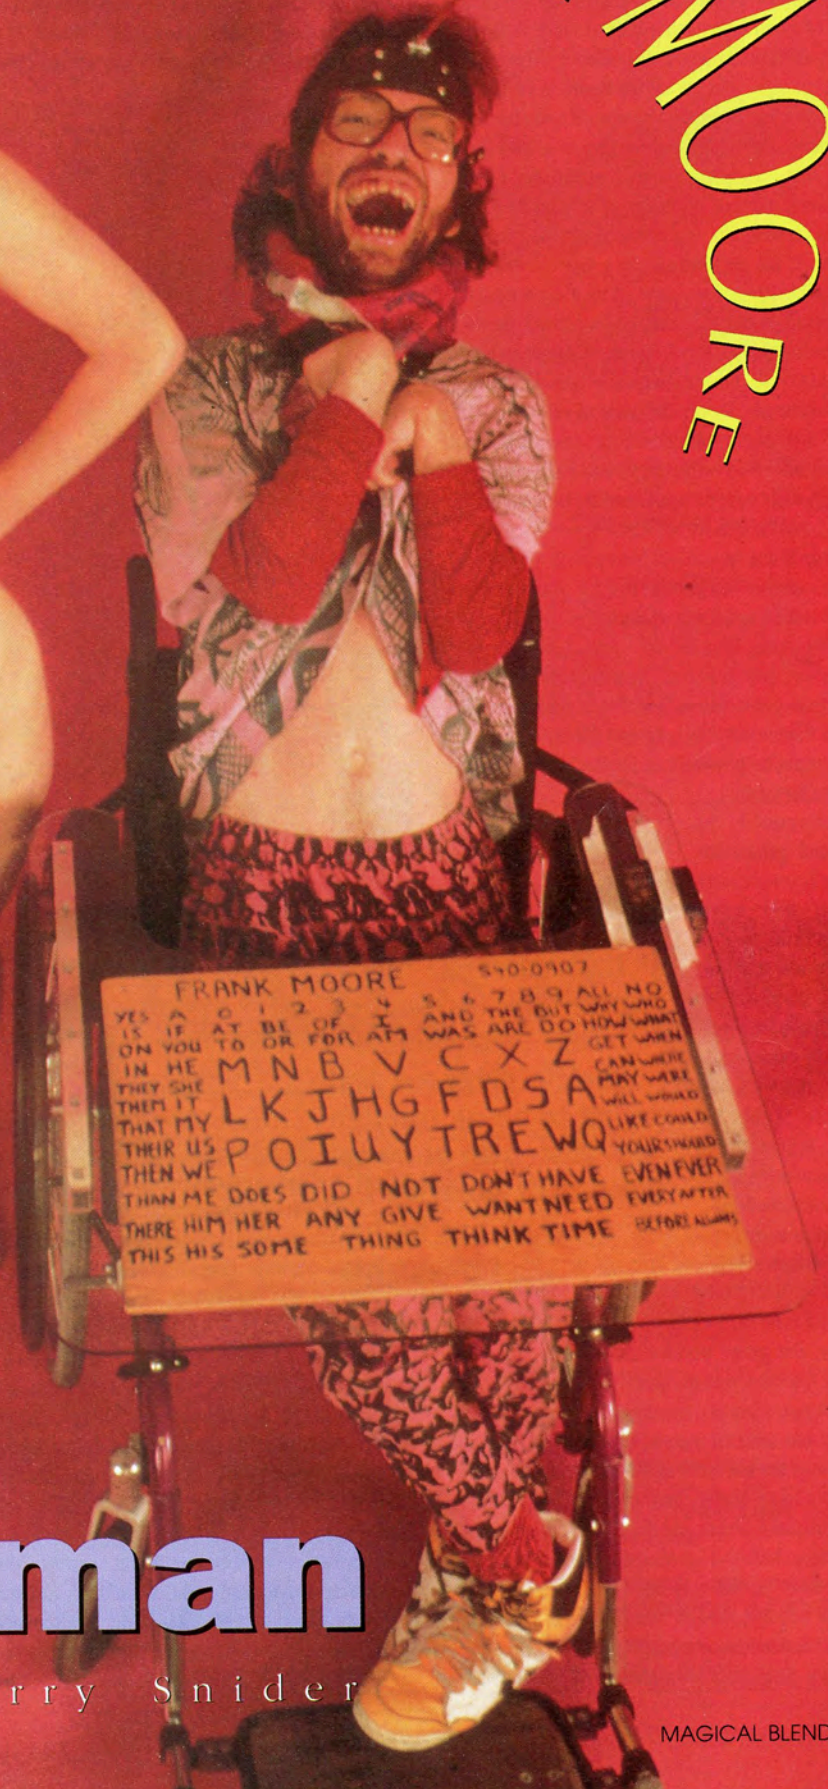 MOORE
FRANK MOORE 540-0907
YES A 0 1 2 3 4 5 6 7 8 9 ALL NO
IS IF AT BE OF I AND THE BUT WHY WHO
ON YOU TO OR FOR AM WAS ARE DO HOW WHAT
IN HE M N B V C X Z GET WHEN
CAN WHERE
THEY SHE MAY WERE
THEM IT L K J H G F D S A WILL WOULD
THAT MY LIKE COULD
THEIR US P O I U Y T R E W Q YOUR SHOULD
THEN WE
THAN ME DOES DID NOT DON'T HAVE EVEN EVER
THERE HIM HER ANY GIVE WANT NEED EVERY AFTER
THIS HIS SOME THING THINK TIME BEFORE ALWAYS
man
rry Snider
MAGICAL BLEND